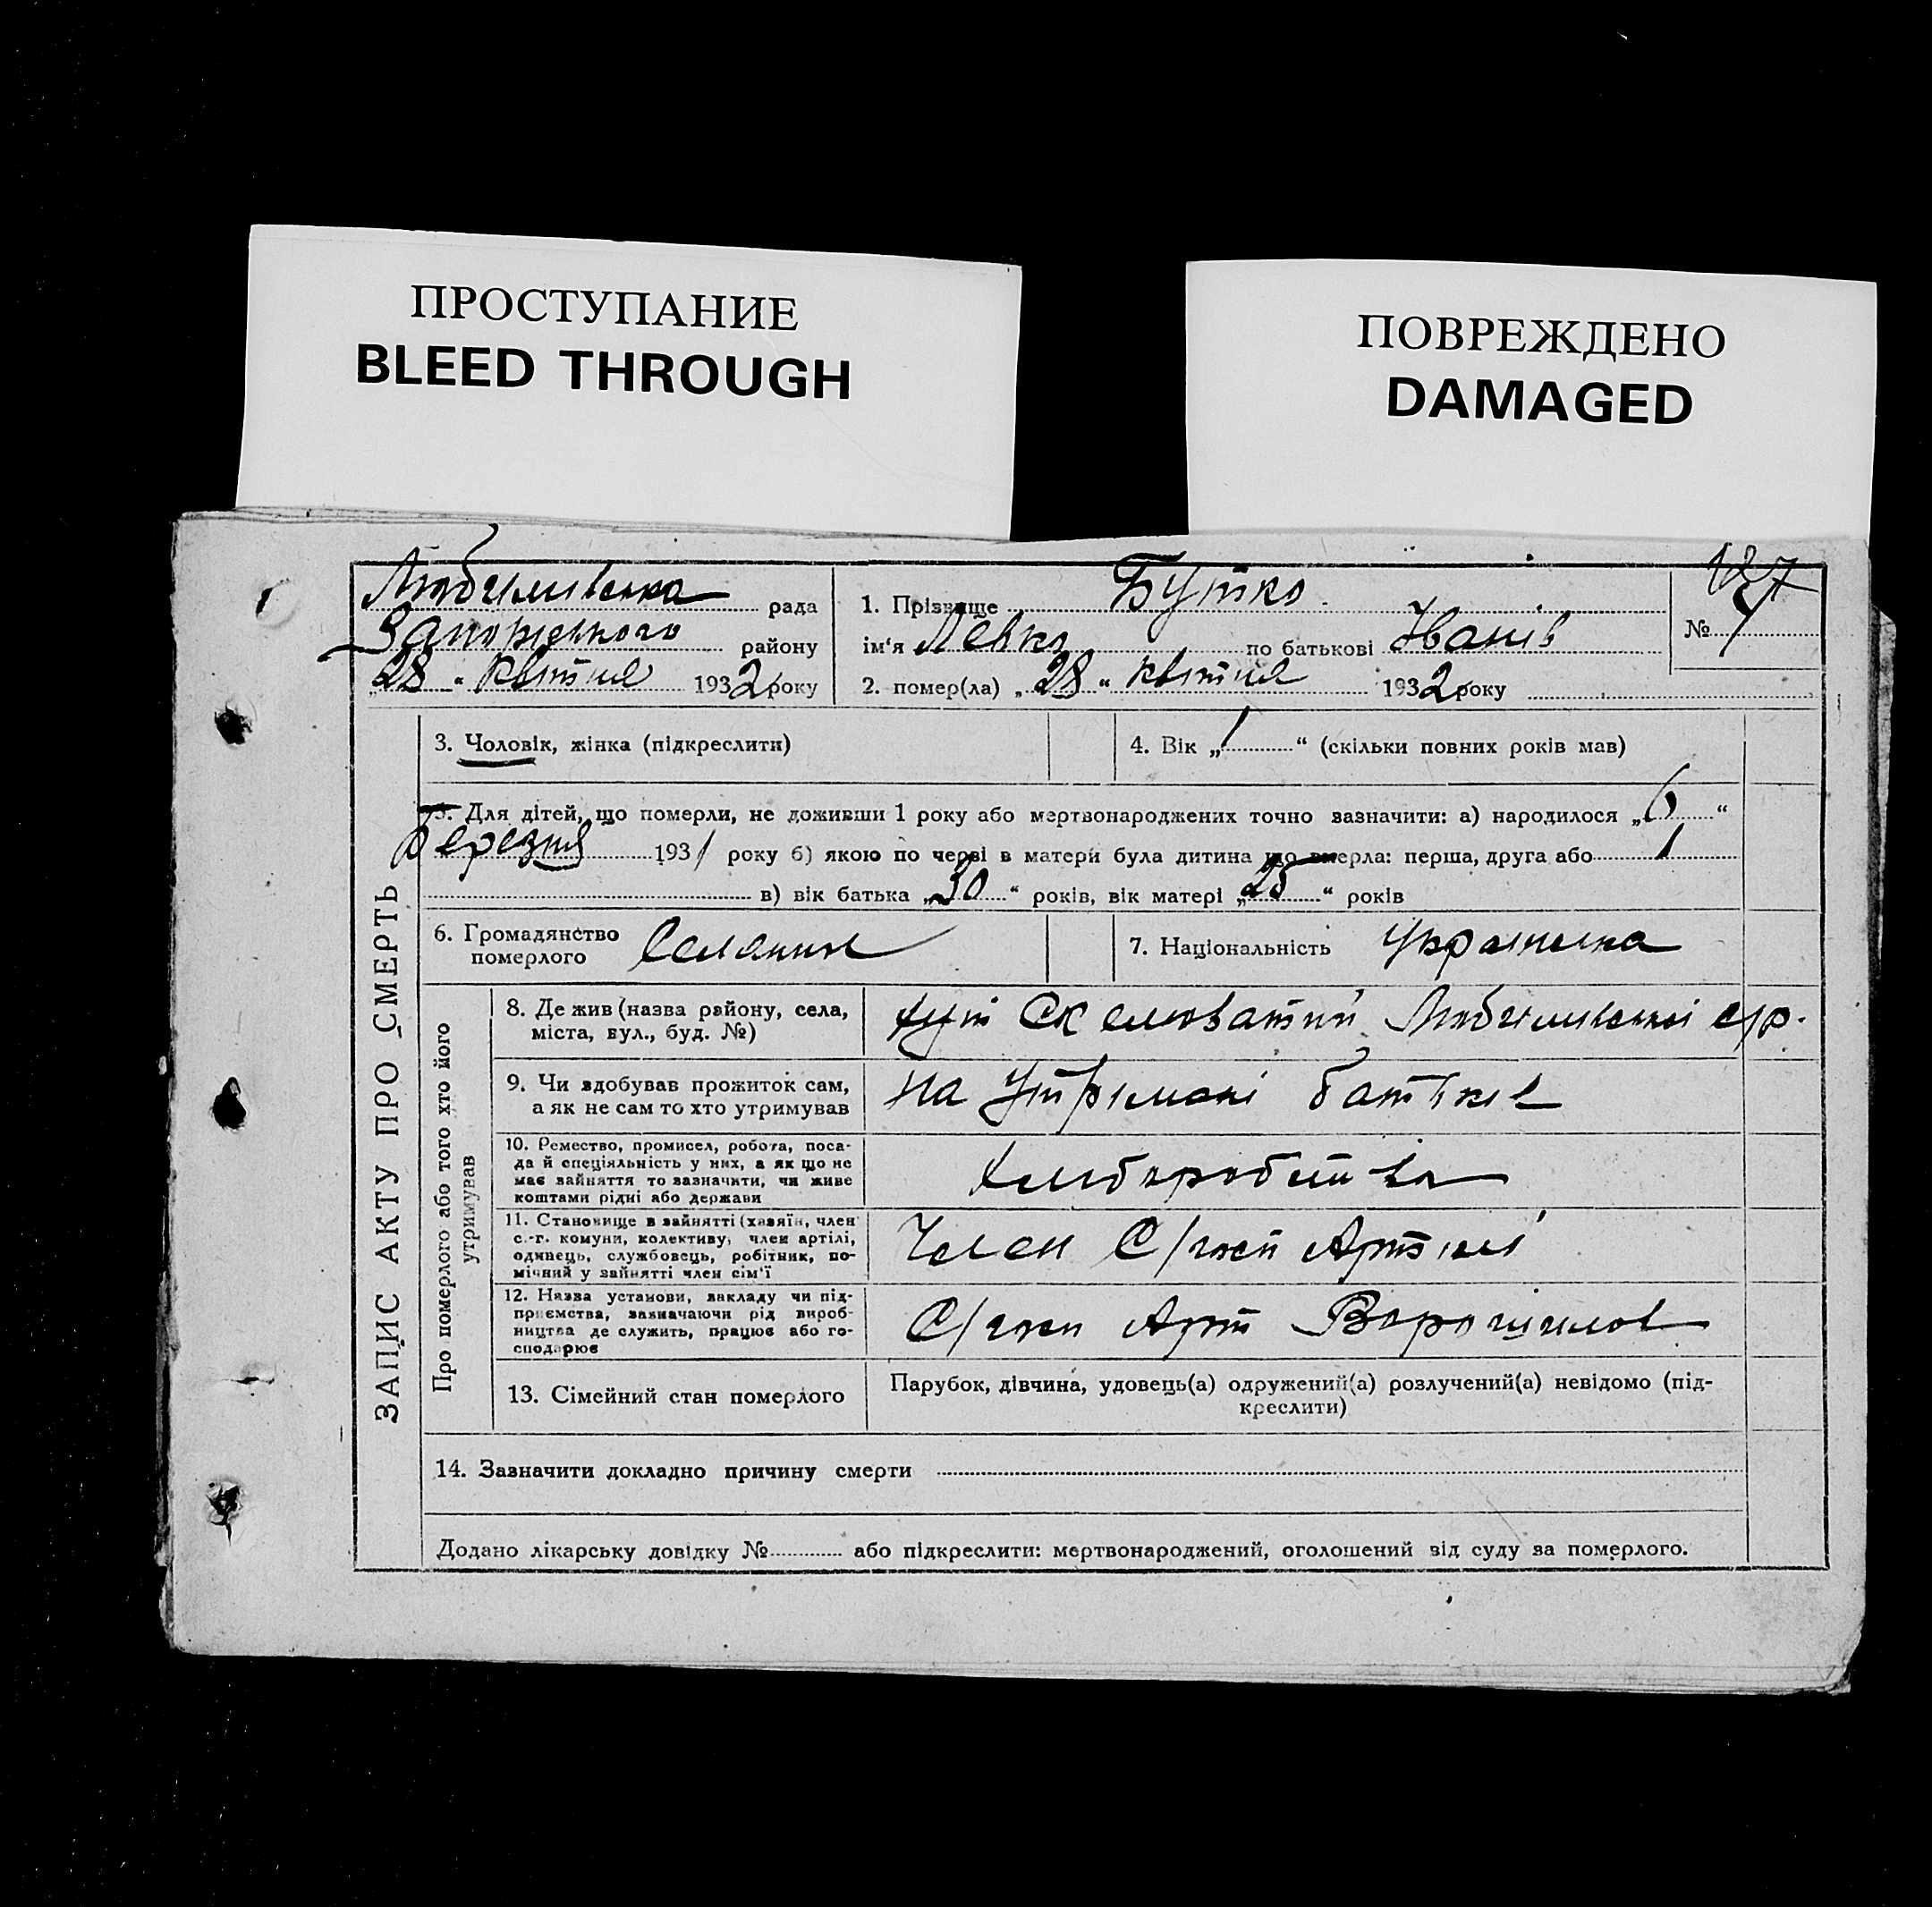 ПРОСТУПАНИЕ
BLEED THROUGH
ПОВРЕЖДЕНО
DAMAGED
Любимивська рада
Запорізького району
„28“ квітня 1932 року
1. Прізвище Бутко
ім'я Левко по батькові Іванів
2. помер(ла) „28“ квітня 1932 року
№ 7
3. Чоловік, жінка (підкреслити)
4. Вік „1“ (скільки повних років мав)
5. Для дітей, що померли, не доживши 1 року або мертвонароджених точно зазначити: а) народилося „6“
Березня 1931 року б) якою по черзі в матери була дитина що вмерла: перша, друга або 1
в) вік батька „30“ років, вік матері „25“ років
6. Громадянство
померлого Селянин
7. Національність Українська
ЗАПИС АКТУ ПРО СМЕРТЬ
Про померлого або того хто його
утримував
8. Де жив (назва району, села,
міста, вул., буд. №)
хут Скелюватий Любимивської с/р.
9. Чи здобував прожиток сам,
а як не сам то хто утримував
на утримані батьків
10. Ремество, промисел, робота, поса-
да й спеціяльність у них, а як що не
має зайняття то зазначити, чи живе
коштами рідні або держави
Хліборобства
11. Становище в зайнятті (хазяїн, член
с.-г. комуни, колективу, член артілі,
одинець, службовець, робітник, по-
мічний у зайнятті член сім'ї
Член С/госп Артілі
12. Назва установи, закладу чи під-
приємства, зазначаючи рід вироб-
ництва де служить, працює або го-
сподарює
С/госп Арт Ворошилов
13. Сімейний стан померлого
Парубок, дівчина, удовець(а) одружений(а) розлучений(а) невідомо (під-
креслити)
14. Зазначити докладно причину смерти
Додано лікарську довідку № або підкреслити: мертвонароджений, оголошений від суду за померлого.